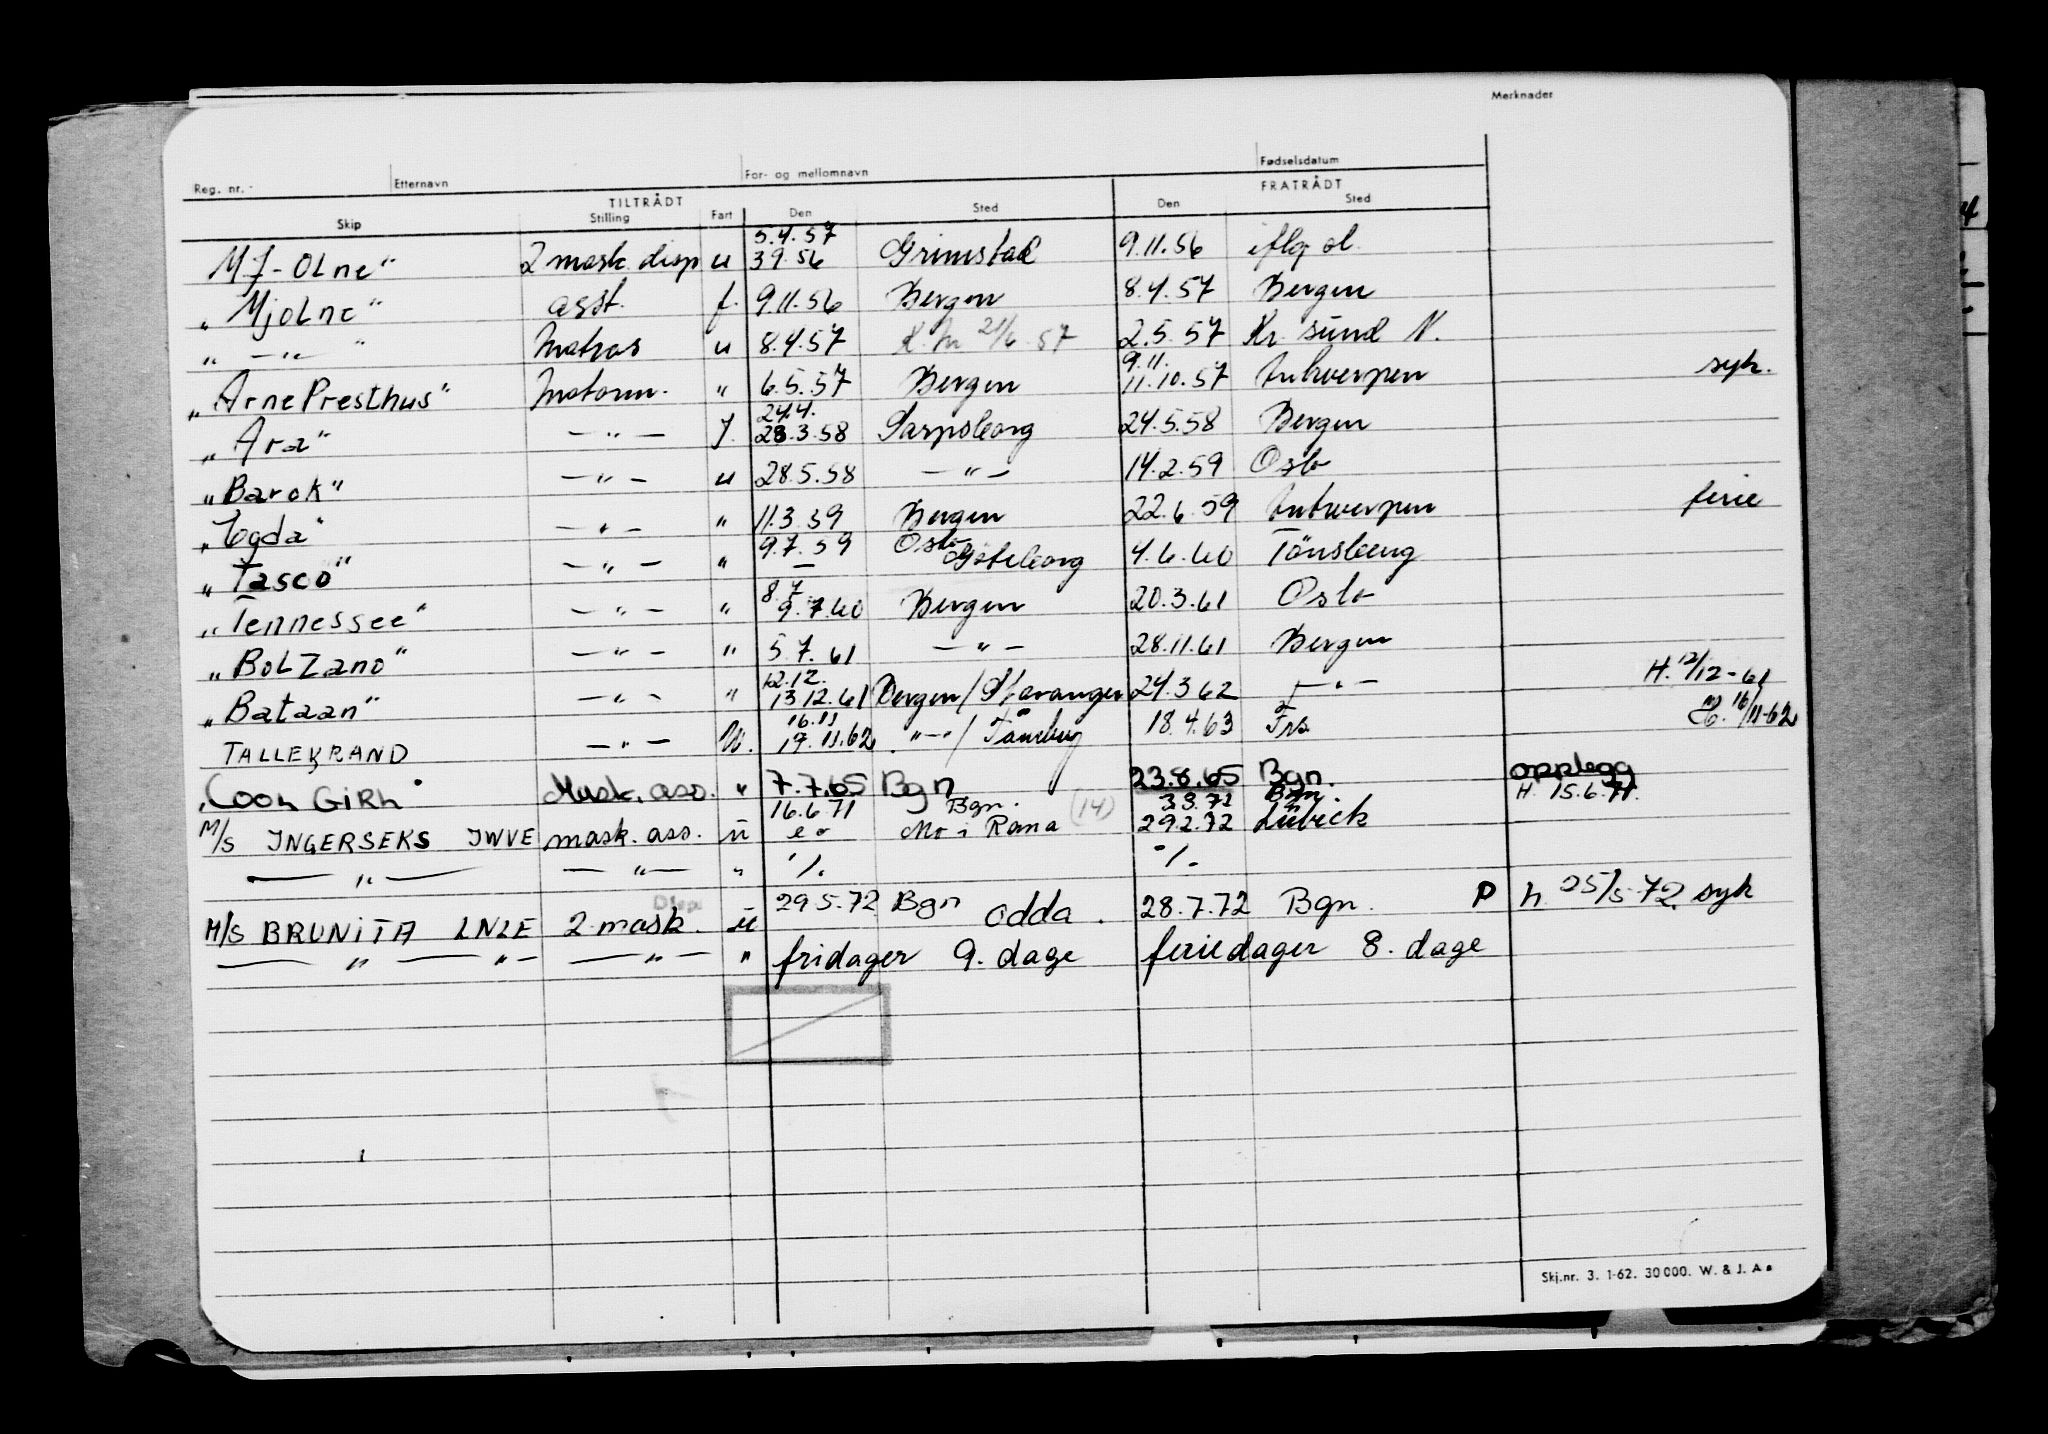 Merknader
Reg. nr. Etternavn For- og mellomnavn Fødselsdatum
TILTRÅDT FRATRÅDT
Skip Stilling Fart Den Sted Den Sted
5.4.57
MJ-OLne" 2 mask. disp u 3.9.56 Grimstad 9.11.56 iflg ol.
"MjoLne" asst. f. 9.11.56 Bergen 8.4.57 Bergen
" —"— " Matros u 8.4.57 57 2.5.57 Kr. sund N.
9.11.
"Arne Presthus" Motorm. " 6.5.57 Bergen 11.10.57 Antwerpen syk.
24.4.
"Ara" —"— 28.3.58 Sarpsborg 24.5.58 Bergen
"Barok" —"— u 28.5.58 —"— 14.2.59 Oslo
—"— " 11.3.59 Bergen 22.6.59 Antwerpen ferie
"Tasco" —"— " 9.7.59 Oslo Göteborg 4.6.60 Tönsberg
8.7
"Tennessee" —"— " 9.7.60 Bergen 20.3.61 Oslo
"BoLZano" —"— " 5.7.61 —"— 28.11.61 Bergen
12.12.
"Bataan" —"— " 13.12.61 Bergen/Stavanger 24.3.62 —"— H. 12/12-61
16.11
TALLEKRAND —"— U. 19.11.62 —"—/Tönsberg 18.4.63 16/11-62
Mask. ass. " 7.7.65 Bgn 23.8.65 Bgn. opplegg
16.6.71 Bgn. (14) 3.3.72 Bgn. H. 15.6.71.
M/S INGERSEKS JWVE mask. ass. u Mo i Rana 29.2.72 Lübeck
—"— —"— " ./. ./.
Disp.
M/S BRUNITA LNLE 2. mask. u 29.5.72 Bgn Odda. 28.7.72 Bgn. P h. 25/5-72. syk
—"— "— —"— " fridager 9. dage feriedager 8. dage
Skj.nr. 3. 1-62. 30 000. W. & J. As